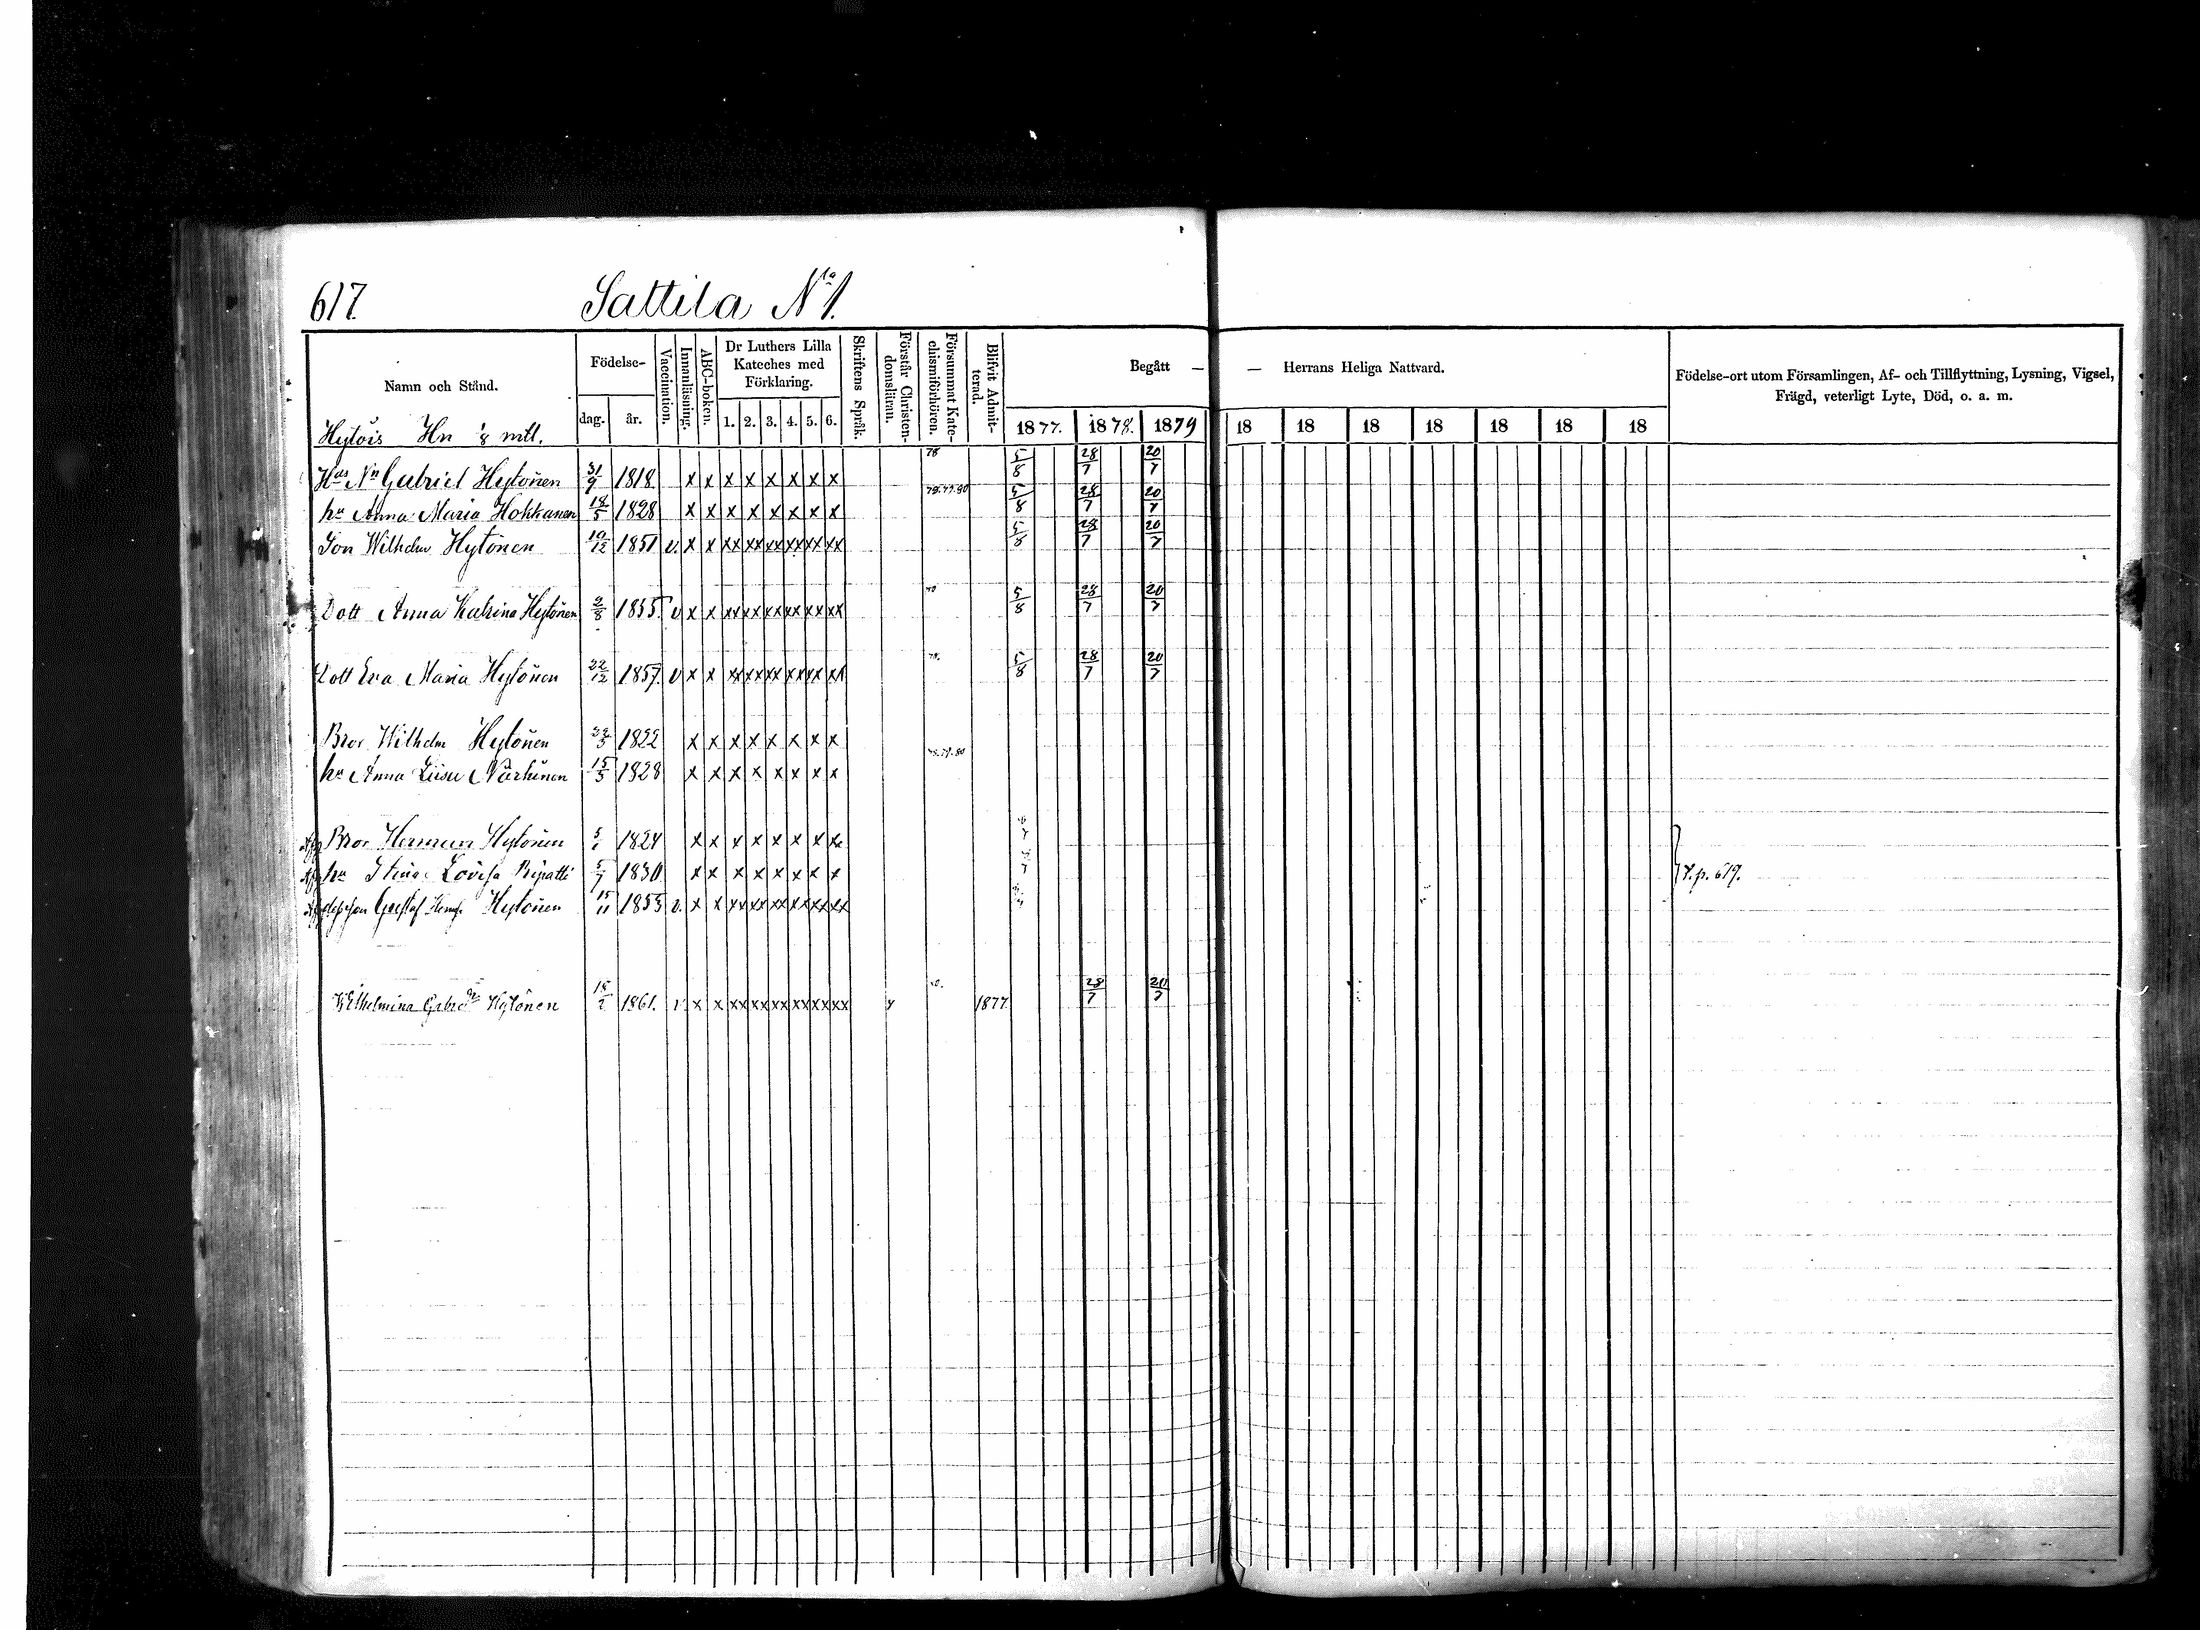 617. Sattila No 1.
Namn och Stånd. Födelse- dag. år. Vaccination. Innanläsning. ABC-boken. Dr Luthers Lilla Kateches med Förklaring. 1. 2. 3. 4. 5. 6. Skriftens Språk. Förstår Christendomsläran. Försummat Katechismiförhören. Blifvit Admitterad. Begått — — Herrans Heliga Nattvard. Födelse-ort utom Församlingen, Af- och Tillflyttning, Lysning, Vigsel, Frägd, veterligt Lyte, Död, o. a. m.
1877. 1878. 1879 18 18 18 18 18 18 18
Hytöis Hn 1/8 mtl.
Gabriel Hytönen 31/9 1818 x x x x x x x x 78 5/8 28/7 20/7
hu Anna Maria Hokkanen 18/5 1828 x x x x x x x x 78.79.80 5/8 28/7 20/7
Son Wilhelm Hytönen 10/12 1851 v. x x xx xx xx xx xx xx 5/8 28/7 20/7
Dott Anna Katrina Hytönen 2/8 1855 v x x xx xx xx xx xx xx 5/8 28/7 20/7
Dott Eva Maria Hytönen 22/12 1857 v x x xx xx xx xx xx xx 78. 5/8 28/7 20/7
Bror Wilhelm Hytönen 1822 x x x x x x x x
hu Anna Liisa Närhinen 15/5 1828 x x x x x x x x
Bror Herman Hytönen 1824 x x x x x x x x
hu Stina Lovisa Ripatti 5/7 1830 x x x x x x x x T. p. 619.
Gustaf Hytönen 15/11 1853 v. x x xx xx xx xx xx xx
Wilhelmina Gabrdr Hytönen 1861. v x x xx xx xx xx xx xx 1877 28/7 20/7